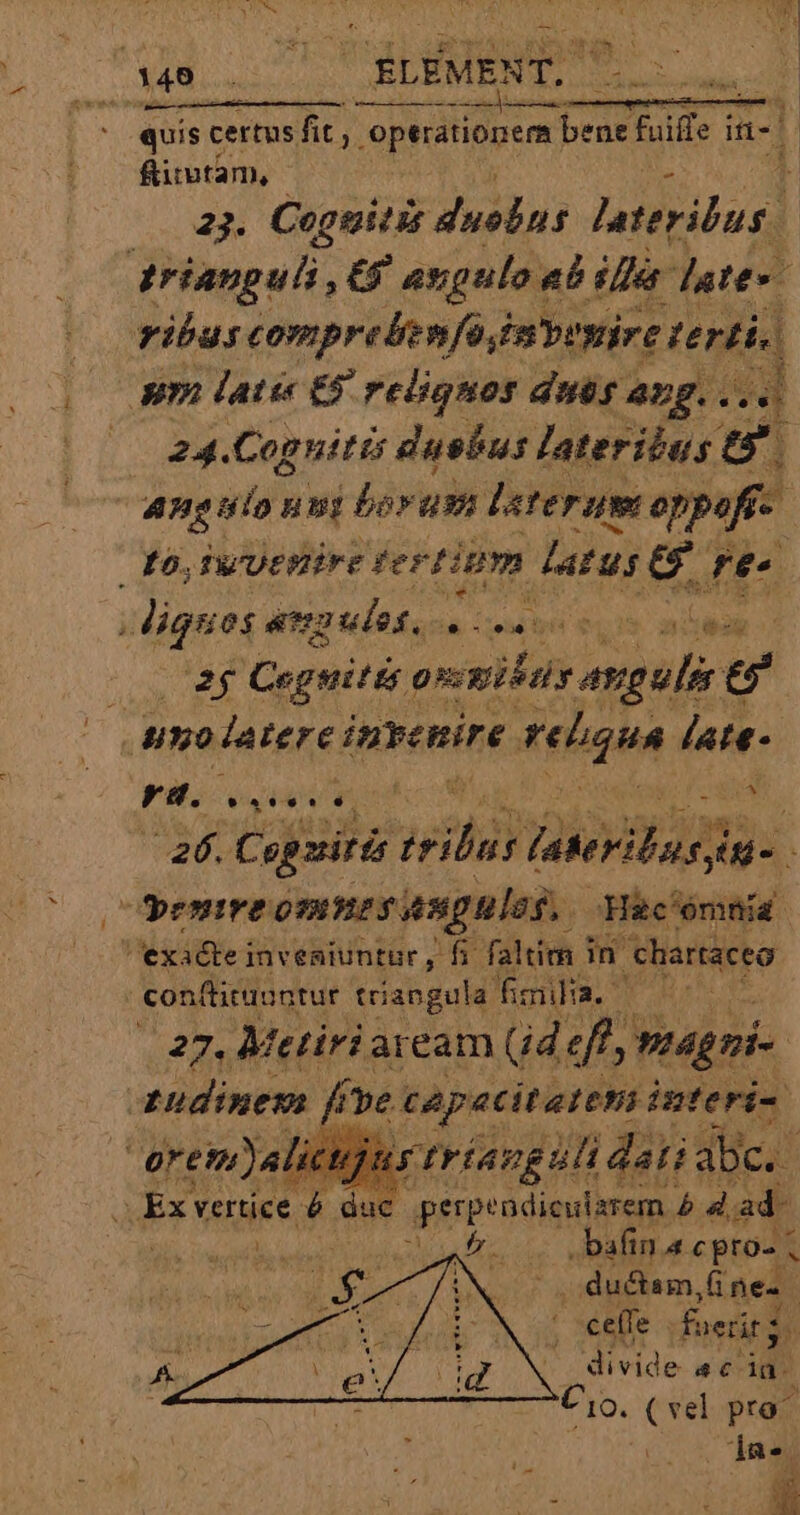 140 ELEMENT.
quis certus fit, operationem bene fuiſſe in-
ſtitutam,
23. Cognitis duobus lateribus
trianguli, & angulo ab illis late-
ribus comprehenſo, invenire terti-
um latus & reliquos duos ang. ...
24. Cognitis duobus lateribus &
angulo uni horum laterum oppoſi-
to, invenire tertium latus & re-
liquos angulos. . . ...
25 Cognitis omnibus angulis &
uno latere invenire reliqua late-
ra. ......
26. Cognitis tribus lateribus, in-
venire omnes angulos. Hæc omnia
exacte inveniuntur, ſi ſaltim in chartaceo
conſtituuntur triangula ſimilia.
27. Metiri aream (id eſt, magni-
tudinem ſive capacitatem interi-
orem) alicujus trianguli dati abc.
Ex vertice b duc perpendicularem b d ad
baſin a c pro-
ductam, ſi ne-
ceſſe fuerit;
divide a c in
10. (vel pro
in-
b
f
A
e
d
C